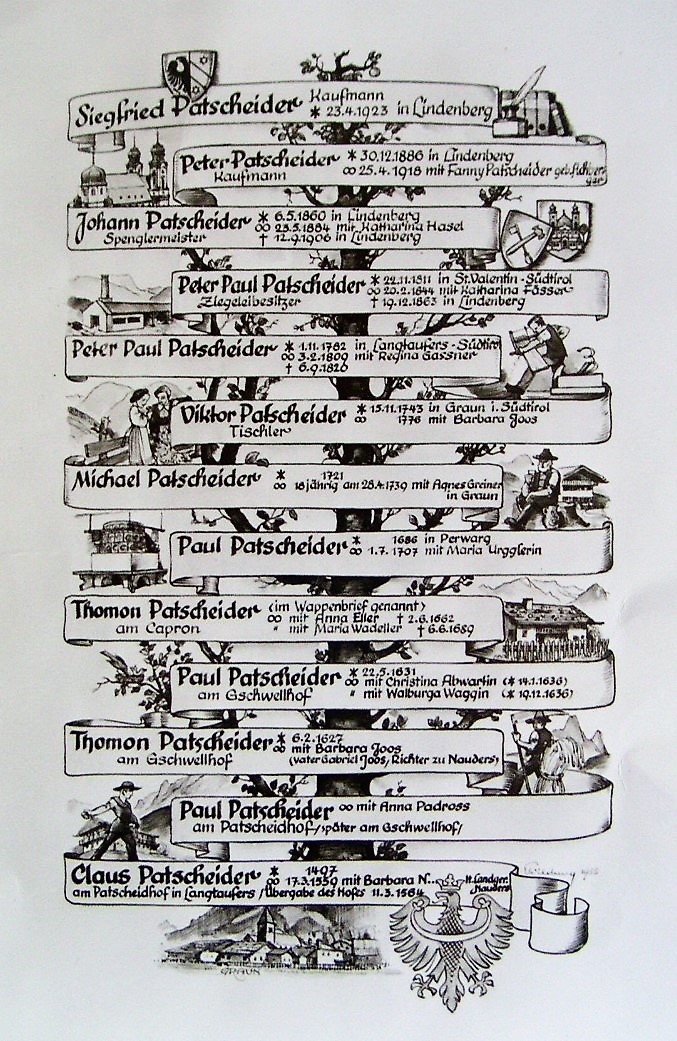 Siegfried Patscheider Kaufmann
* 23.4.1923 in Lindenberg
Peter Patscheider * 30.12.1886 in Lindenberg
Kaufmann ∞ 25.4.1918 mit Fanny Patscheider geb.
Johann Patscheider * 6.5.1860 in Lindenberg
Spenglermeister ∞ 23.5.1884 mit Katharina Hasel
† 12.9.1906 in Lindenberg
Peter Paul Patscheider * 22.11.1811 in St.Valentin-Südtirol
Ziegeleibesitzer ∞ 20.2.1844 mit Katharina Fässer
† 19.12.1863 in Lindenberg
Peter Paul Patscheider * 1.11.1782 in Langtaufers-Südtirol
∞ 3.2.1809 mit Regina Gassner
† 6.9.1826
Viktor Patscheider * 15.11.1743 in Graun i. Südtirol
Tischler ∞ 1776 mit Barbara Joos
Michael Patscheider * 1721
∞ 18jährig am 28.4.1739 mit Agnes Greiner
in Graun
Paul Patscheider * 1686 in Perwarg
∞ 1.7.1707 mit Maria Urgglerin
Thomon Patscheider (im Wappenbrief genannt)
am Capron ∞ mit Anna Eller † 2.6.1662
" mit Maria Wadeller † 6.6.1689
Paul Patscheider * 22.5.1631
am Gschwellhof ∞ mit Christina Abwartin (* 14.1.1636)
" mit Walburga Waggin (* 19.12.1636)
Thomon Patscheider * 6.2.1627
am Gschwellhof ∞ mit Barbara Joos
(Vater Gabriel Joos, Richter zu Nauders)
Paul Patscheider ∞ mit Anna Padross
am Patscheidhof/später am Gschwellhof/
Claus Patscheider * 1497
∞ 17.3.1539 mit Barbara N.. lt. Landger.
am Patscheidhof in Langtaufers /Übergabe des Hofes 11.3.1564 Nauders
GRAUN